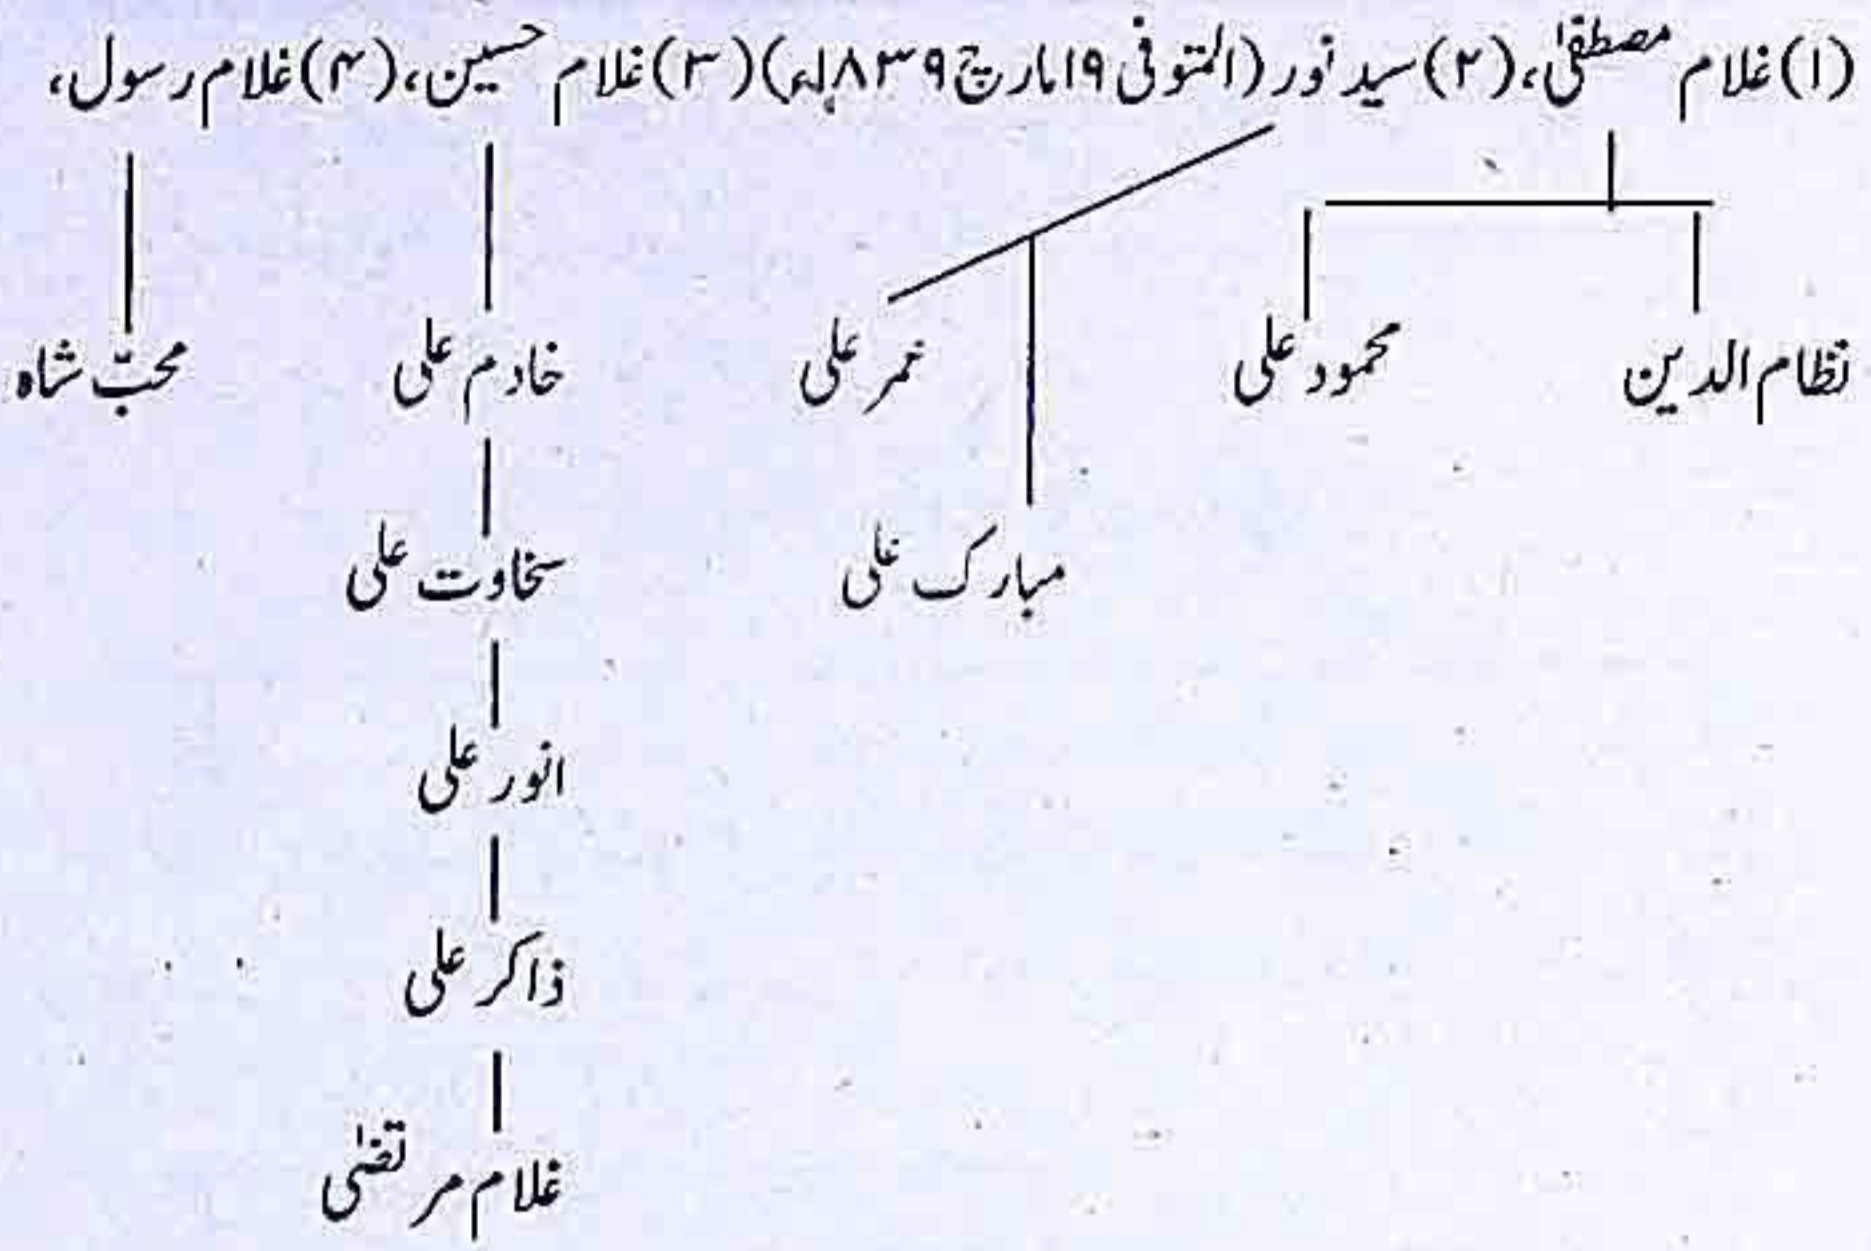 (۱) غلام مصطفیٰ، (۲) سید نور (المتوفی ۱۹ مارچ ۱۸۳۹ء) (۳) غلام حسین، (۴) غلام رسول،
نظام الدین محمود علی عمر علی خادم علی محبّ شاہ
مبارک علی سخاوت علی
انور علی
ذاکر علی
غلام مرتضٰی